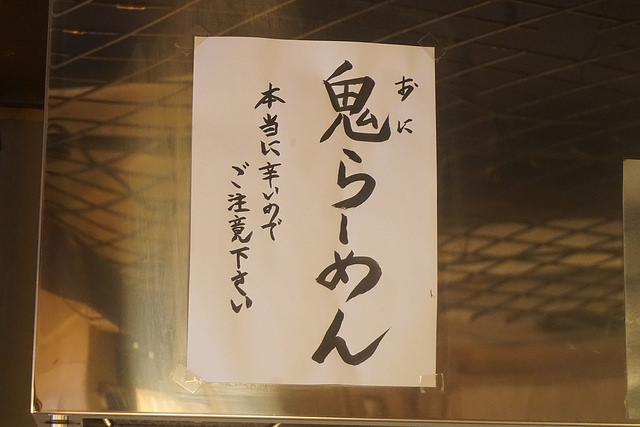 おに
鬼らーめん
本当に辛いので
ご注意下さい